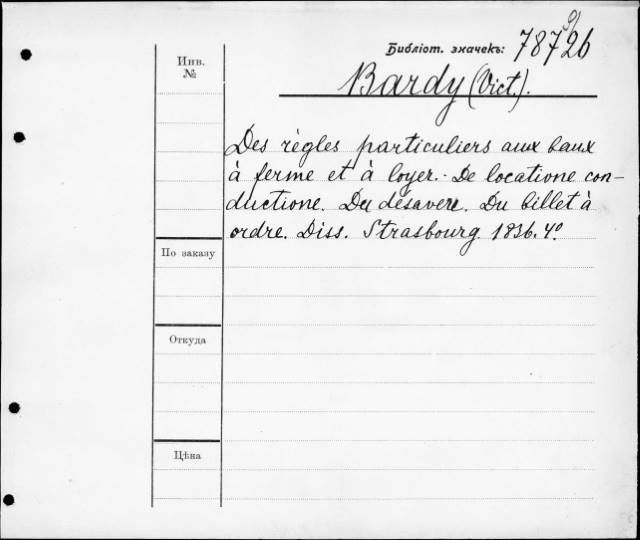 Библіот. значекъ: 787 9/26
Bardy (Vict.).
Инв.
№
Des règles particuliers aux baux
à ferme et à loyer. - De locatione con-
ductione. Du désaveu. Du billet à
ordre. Diss. Strasbourg. 1836. 4°.
По заказу
Откуда
Цѣна